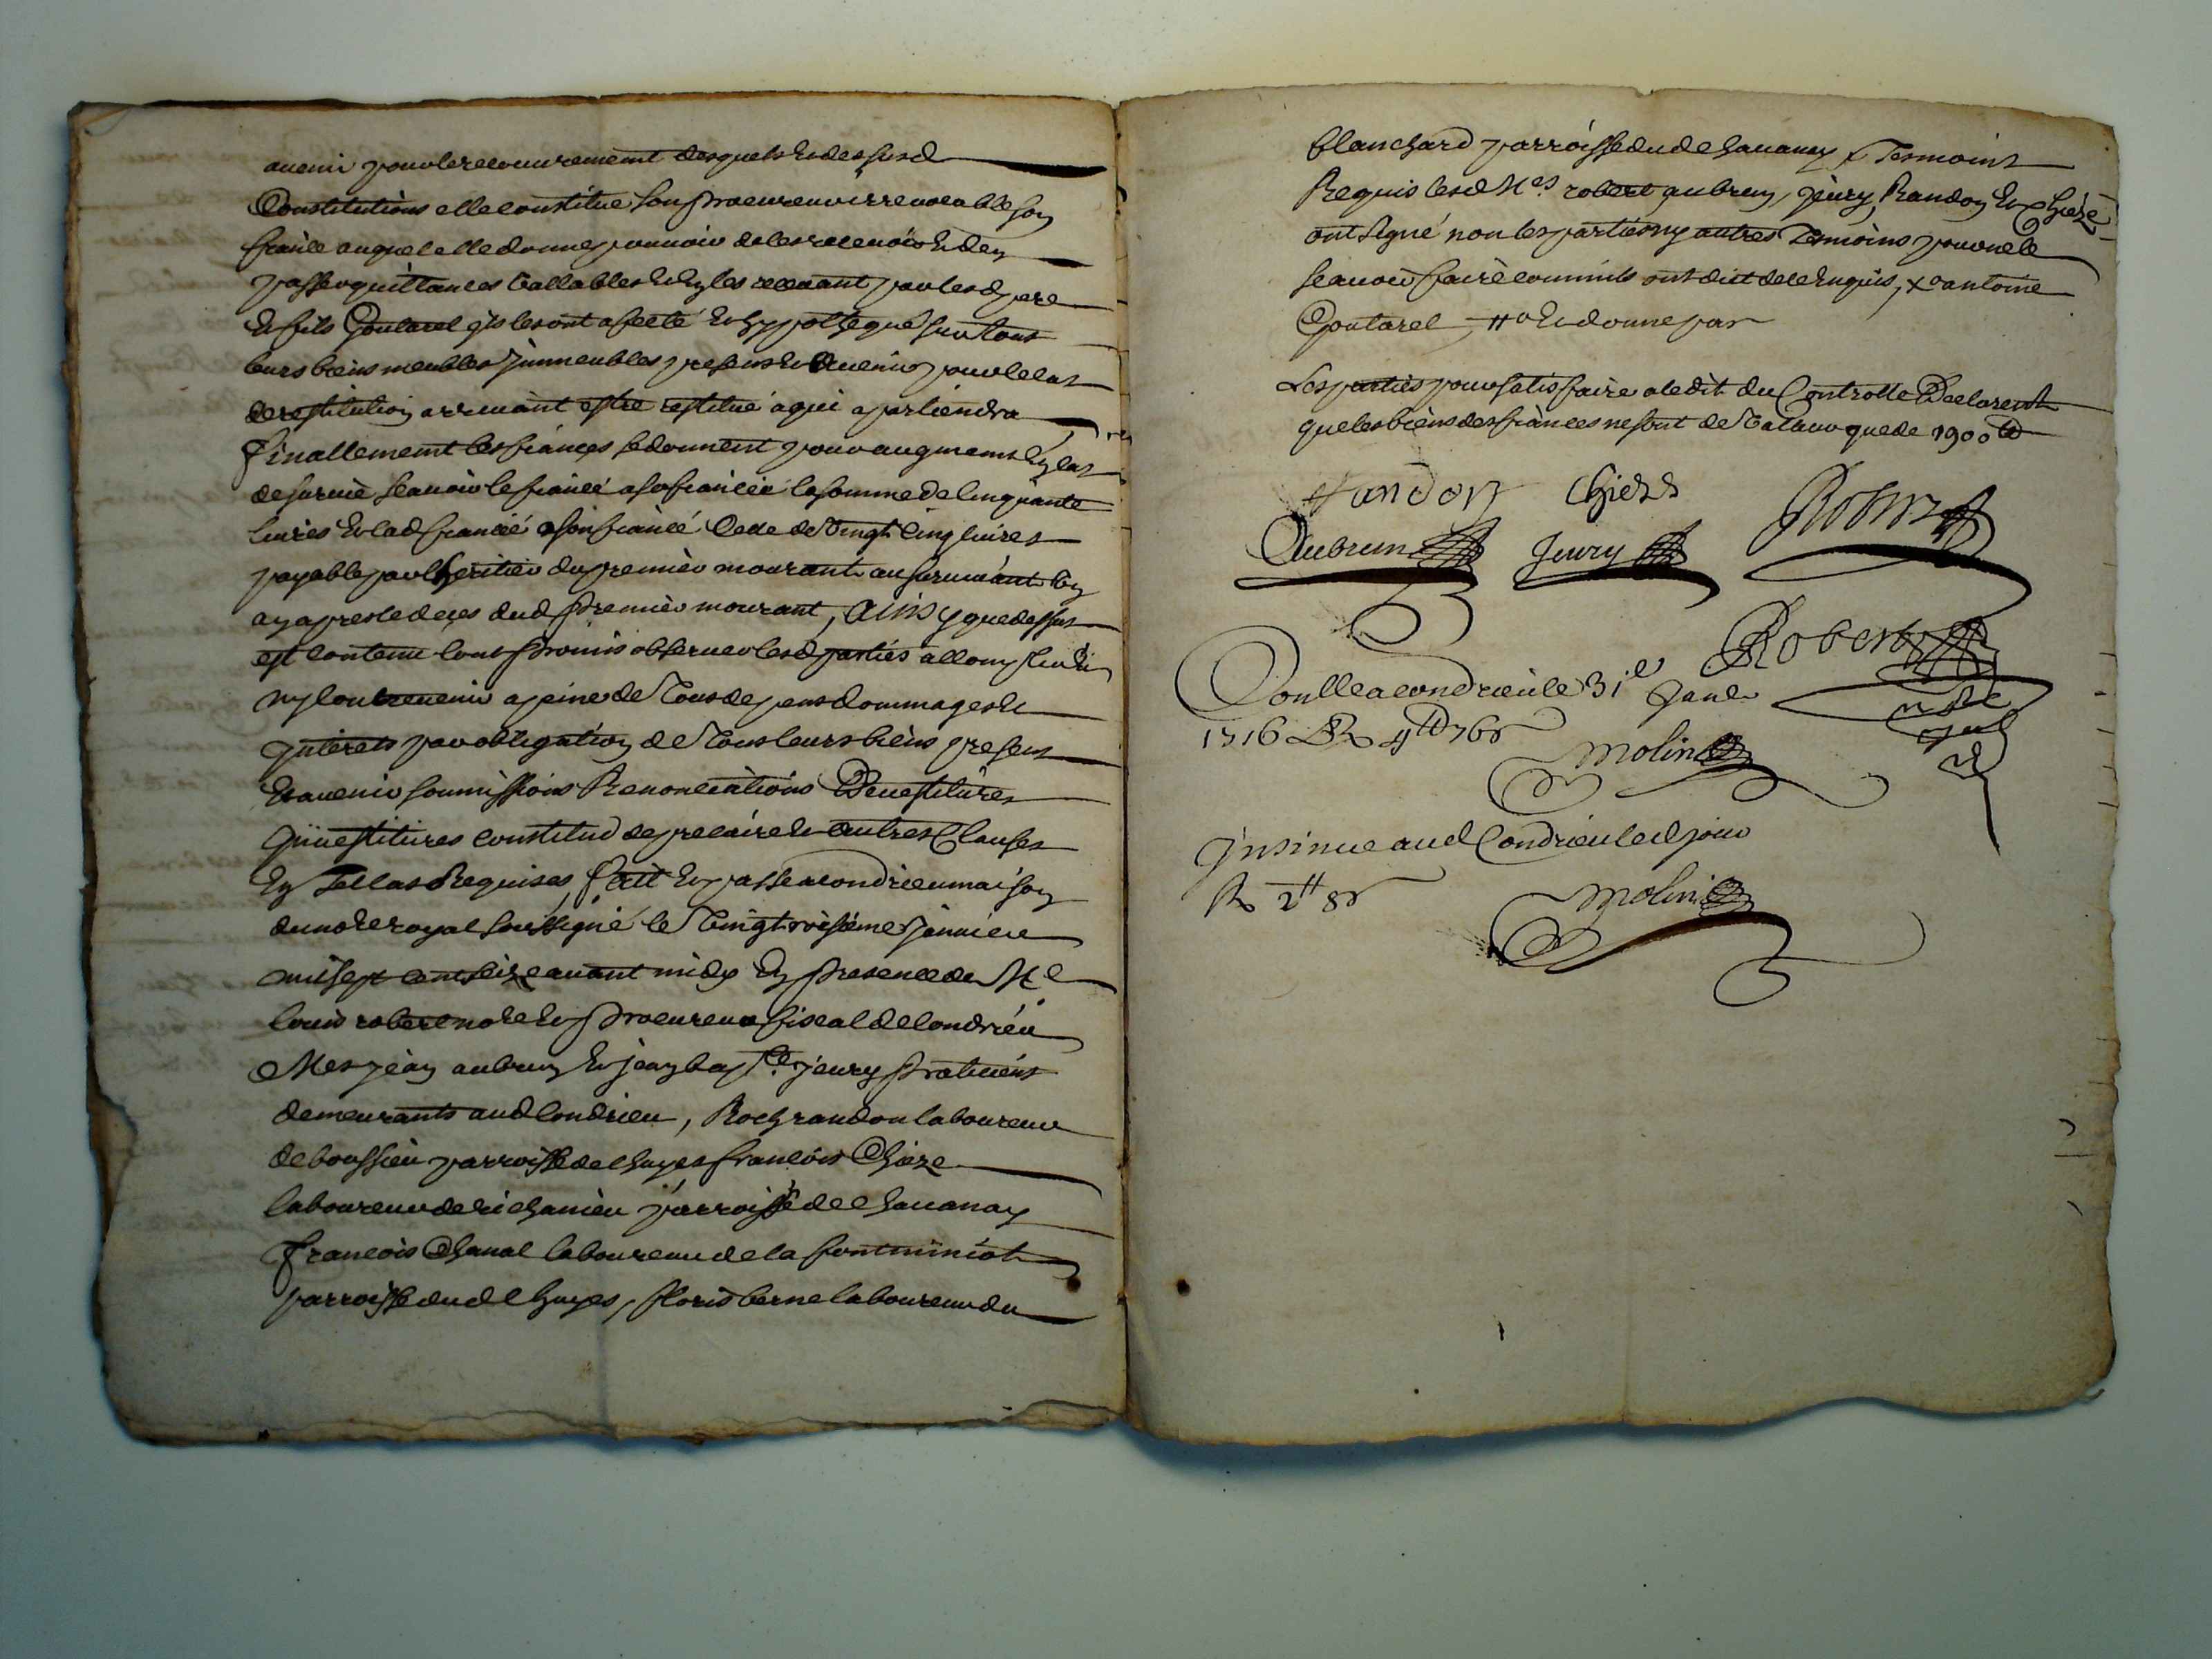 auenir pour le recouurement desquels et des susd
Constitutions elle constitue son procureur irreuocable son
fiancé auquel elle donne pouuoir de les receuoir et den
passer quittances vallables et en les receuant par lesd pere
et fils Goutarel ils les ont afecté et hyppothequé sur tous
leurs biens meubles immeubles presens et auenir pour le cas
de restitution arriuant estre restitué a qui apartiendra
finallement les fiancés se donnent pour augment en cas
de suruie scauoir le fiancé a sa fiancée la somme de Cinquante
liures et lad fiancée a son fiancé Celle de Vingt Cinq liures
payable par lheritier du premier mourant au suruiuant un
an apres le deces dud premier mourant, ainsy que dessus
est contenu lont promis obseruer lesd parties a
ny contreuenir a peine de Tous depens dommages et
interets par obligation de Tous leurs biens presens
et auenir soumissions Renonciations Deuestitures
inuestitures constitud de precaire et autres Clauses
En Tel cas Requises, fait et passé a condrieu maison
du nore royal soussigné le Vingtroisieme januier
mil sept cent seize auant midy En presence de Me
louis robert nore et procureur fiscal de Condrieu
Mes jean aubrun et jean bapte jeury praticiens
demeurants aud Condrieu, Roch randon laboureur
de boussieu parroisse de chuyes francois Chieze
laboureur de richanieu parroisse de chauanay
francois Chanal laboureur de la font
parroisse dud Chuyes, floris berne laboureur du
blanchard parroisse dud chauanay Tesmoins
Requis lesd Mes robert aubrun, jeury Randon et Chieze
ont signé non les parties ny autres Temoins pour ne le
scauoir faire comme ils ont dit de ce enquis, x antoine
Goutarel # et donne par
Les parties pour satisfaire a ledit du Controlle Declarent
que les biens des fiances ne sont de Valeur que de 1900 tt
Randon Chieze Robert
Aubrun Jeury
Robert
nore
royal
Conlle a condrieu le 31e Janer
1716 R 4tt 76s
Molin
Insinue aud Condrieu led jour
R 2tt 8s
Molin